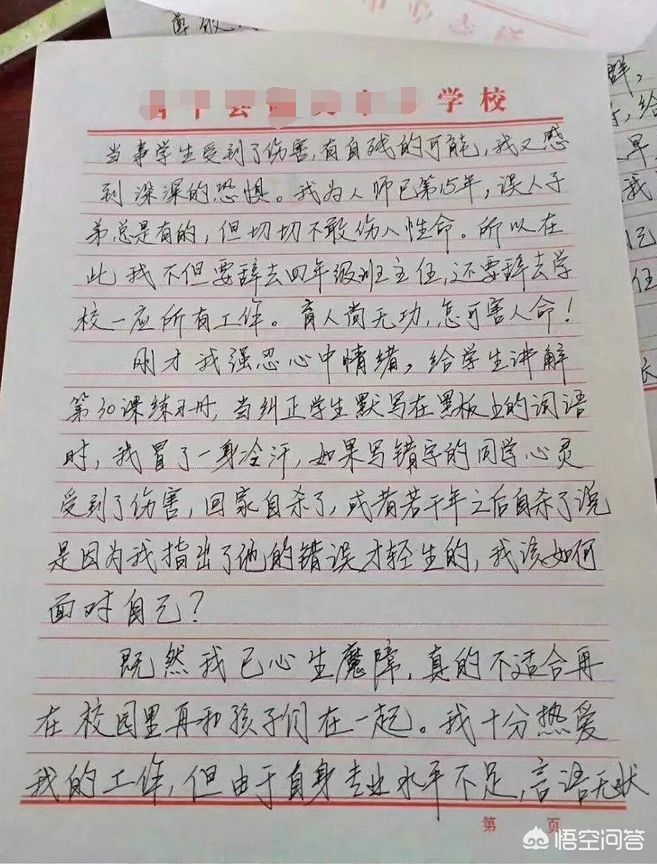 学校
当事学生受到了伤害,有自残的可能,我又感
到深深的恐惧。我为人师已第15年,误人子
弟总是有的,但切切不敢伤人性命。所以在
此我不但要辞去四年级班主任,还要辞去学
校一应所有工作。育人尚无功,怎可害人命!
刚才我强忍心中情绪,给学生讲解
第30课练习册,当纠正学生默写在黑板上的词语
时,我冒了一身冷汗,如果写错字的同学心灵
受到了伤害,回家自杀了,或者若干年之后自杀了说
是因为我指出了他的错误才轻生的,我该如何
面对自己?
既然我已心生魔障,真的不适合再
在校园里再和孩子们在一起。我十分热爱
我的工作,但由于自身专业水平不足,言语无状
第 页
悟空问答